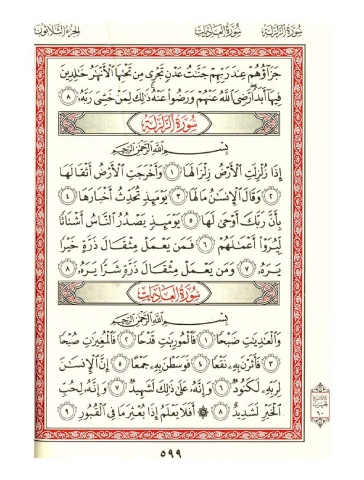 سُورَةُ الزَّلْزَلَةِ سُورَةُ العَادِيَاتِ الجُزْءُ الثَّلَاثُونَ
جَزَآؤُهُمْ عِندَ رَبِّهِمْ جَنَّٰتُ عَدْنٍ تَجْرِى مِن تَحْتِهَا ٱلْأَنْهَٰرُ خَٰلِدِينَ
فِيهَآ أَبَدًا رَّضِىَ ٱللَّهُ عَنْهُمْ وَرَضُوا۟ عَنْهُ ذَٰلِكَ لِمَنْ خَشِىَ رَبَّهُۥ ٨
سُورَةُ الزَّلْزَلَةِ
بِسْمِ ٱللَّهِ ٱلرَّحْمَٰنِ ٱلرَّحِيمِ
إِذَا زُلْزِلَتِ ٱلْأَرْضُ زِلْزَالَهَا ١ وَأَخْرَجَتِ ٱلْأَرْضُ أَثْقَالَهَا
٢ وَقَالَ ٱلْإِنسَٰنُ مَا لَهَا ٣ يَوْمَئِذٍ تُحَدِّثُ أَخْبَارَهَا ٤
بِأَنَّ رَبَّكَ أَوْحَىٰ لَهَا ٥ يَوْمَئِذٍ يَصْدُرُ ٱلنَّاسُ أَشْتَاتًا
لِّيُرَوْا۟ أَعْمَٰلَهُمْ ٦ فَمَن يَعْمَلْ مِثْقَالَ ذَرَّةٍ خَيْرًا
يَرَهُۥ ٧ وَمَن يَعْمَلْ مِثْقَالَ ذَرَّةٍ شَرًّا يَرَهُۥ ٨
سُورَةُ العَادِيَاتِ
بِسْمِ ٱللَّهِ ٱلرَّحْمَٰنِ ٱلرَّحِيمِ
وَٱلْعَٰدِيَٰتِ ضَبْحًا ١ فَٱلْمُورِيَٰتِ قَدْحًا ٢ فَٱلْمُغِيرَٰتِ صُبْحًا
٣ فَأَثَرْنَ بِهِۦ نَقْعًا ٤ فَوَسَطْنَ بِهِۦ جَمْعًا ٥ إِنَّ ٱلْإِنسَٰنَ
لِرَبِّهِۦ لَكَنُودٌ ٦ وَإِنَّهُۥ عَلَىٰ ذَٰلِكَ لَشَهِيدٌ ٧ وَإِنَّهُۥ لِحُبِّ
ٱلْخَيْرِ لَشَدِيدٌ ٨ ۞ أَفَلَا يَعْلَمُ إِذَا بُعْثِرَ مَا فِى ٱلْقُبُورِ ٩
٦٠
٥٩٩